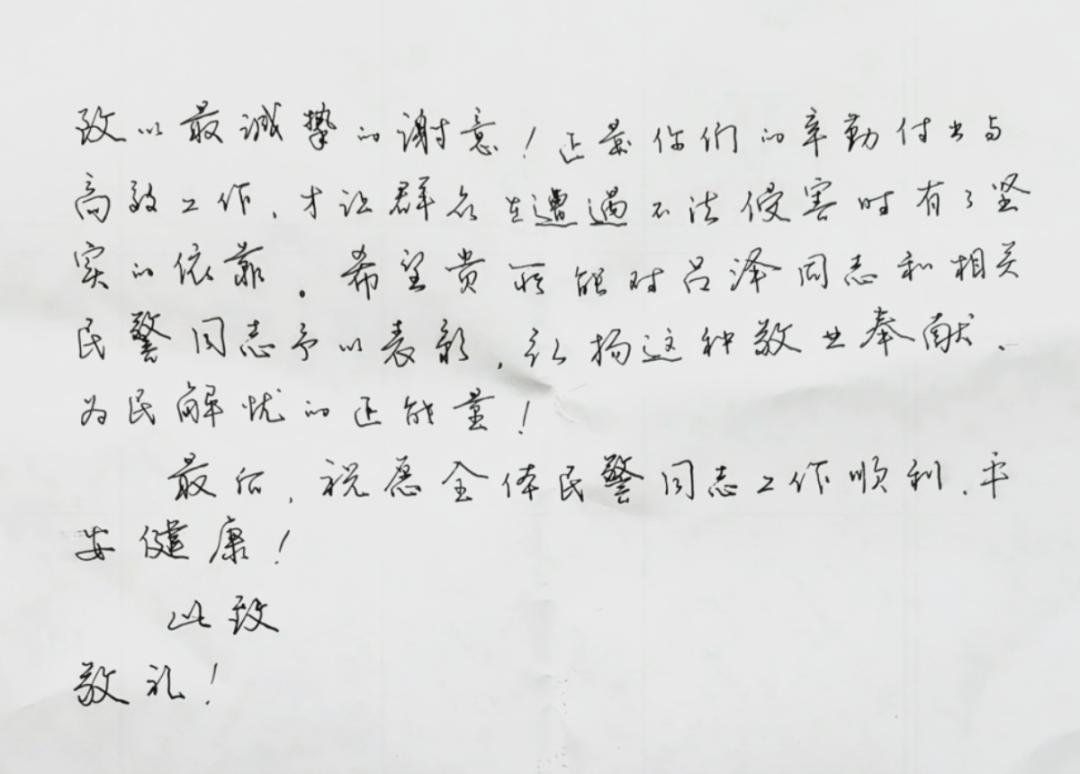 致以最诚挚的谢意！正是你们的辛勤付出与
高效工作，才让群众在遭遇不法侵害时有了坚
实的依靠。希望贵所能对吕泽同志和相关
民警同志予以表彰，弘扬这种敬业奉献、
为民解忧的正能量！
最后，祝愿全体民警同志工作顺利、平
安健康！
此致
敬礼！